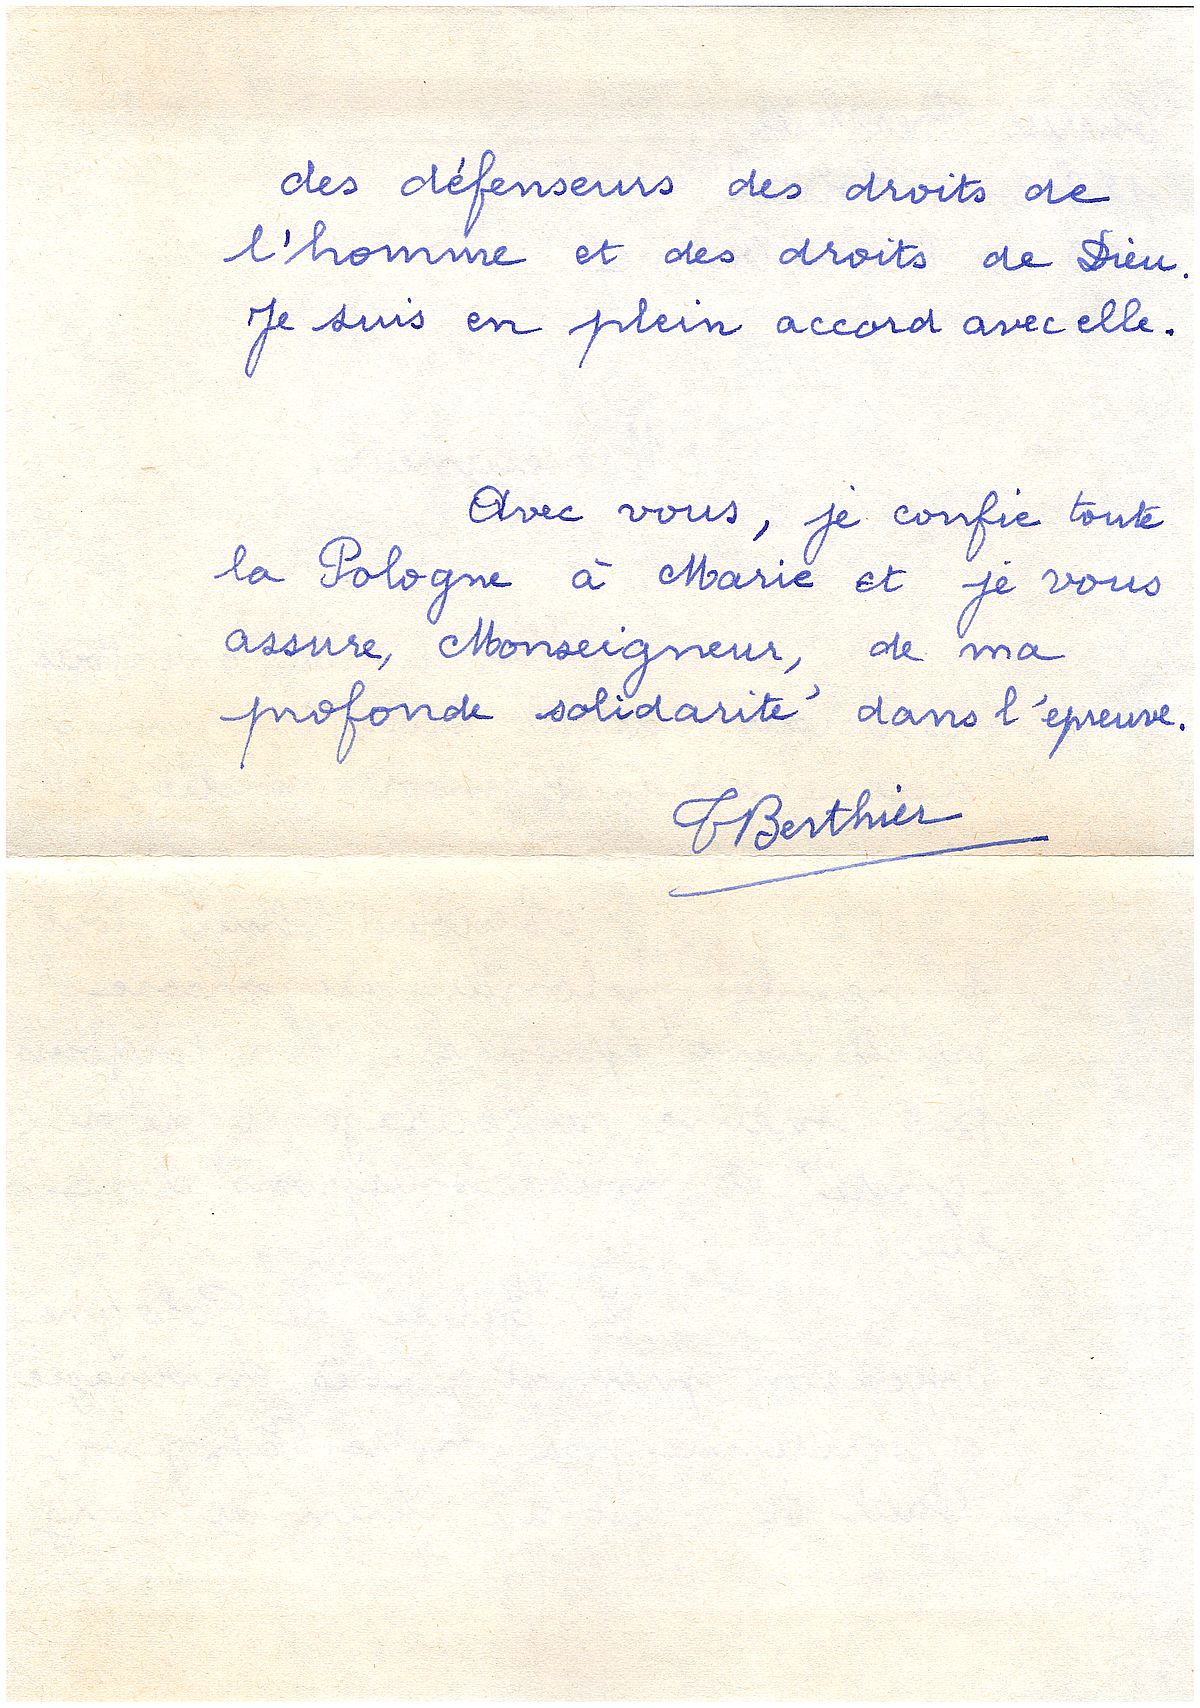 des défenseurs des droits de
l'homme et des droits de Dieu.
Je suis en plein accord avec elle.
Avec vous, je confie toute
la Pologne à Marie et je vous
assure, Monseigneur, de ma
profonde solidarité dans l'épreuve.
Berthier